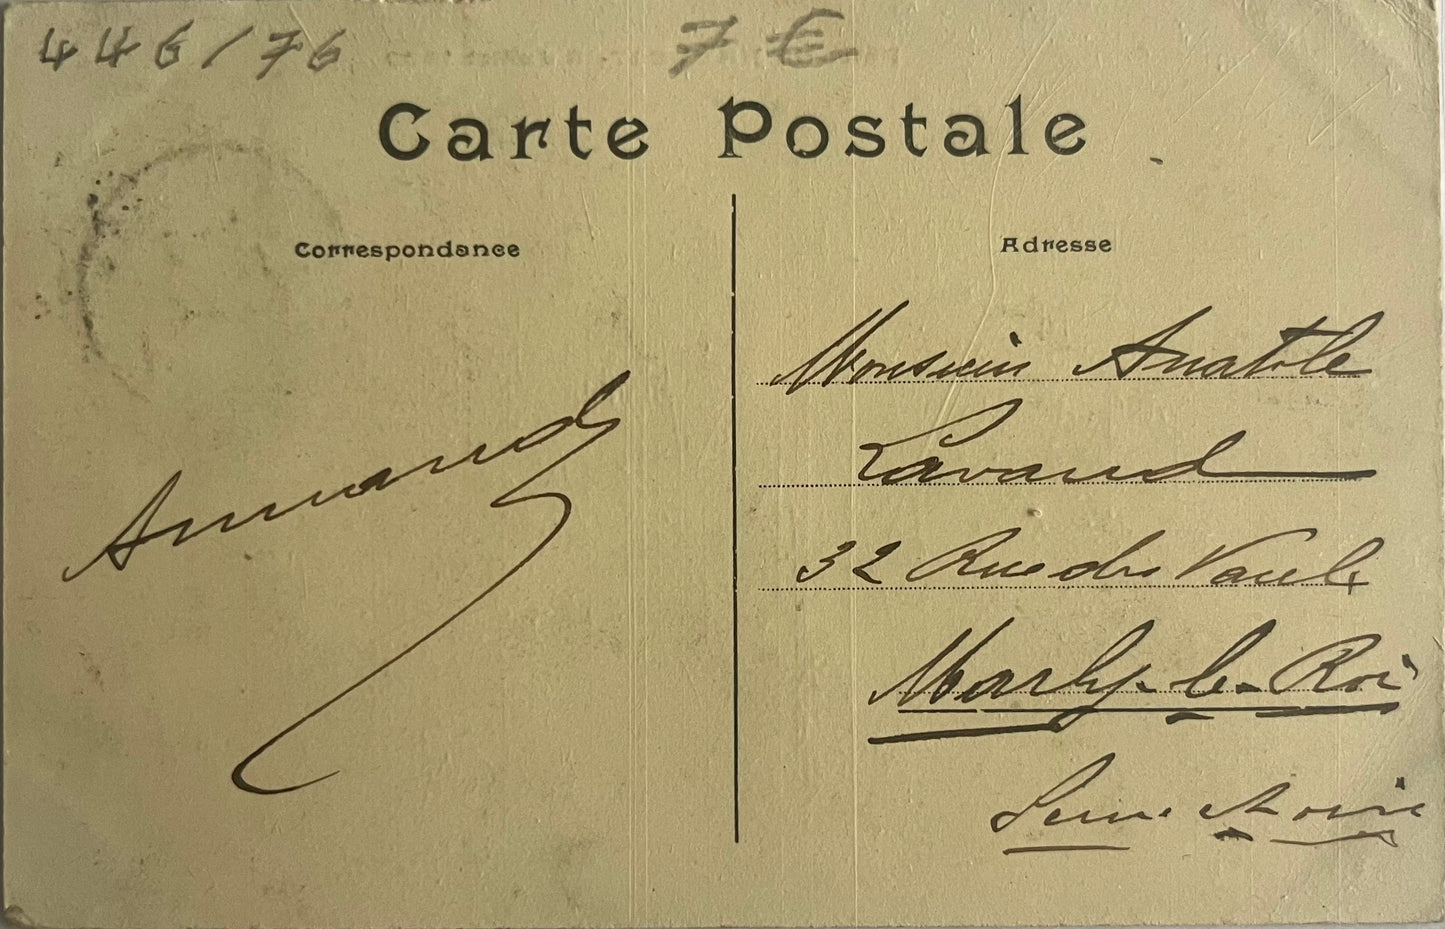 446/76 7 €
Carte Postale
Correspondance
Adresse
Armand
Monsieur Anatole
Lavaud
32 Rue des Vaulx
Marly-le-Roi
Seine & Oise